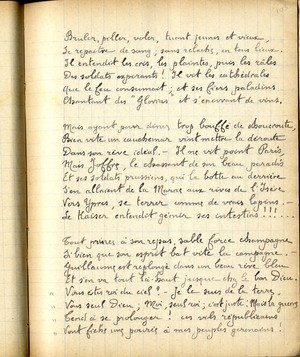 Bruler, piller, voler, tuant jeunes et vieux,
Se repaitre de sang, sans relache, en tous lieux.
Il entendit les cris, les plaintes, puis les râles
Des soldats expirants ! Il vit les cathédrales
Que le feu consumait, et ses fiers paladins
Chantant des "Gloria" et s'enivrant de vins.
Mais ayant pour diner trop bouffé de choucroute
Bien vite un cauchemar vint mettre la déroute
Dans son rêve idéal. - Il ne vit point Paris,
Mais Joffre, le chassant de son beau paradis
Et ses soldats prussiens, qui la botte au derrière
S'en allaient de la Marne aux rives de l'Isère
Vers Ypres, se terrer comme de vrais lapins.
Le Kaiser entendit gémir ses intestins !!!....
Tout prince, à son repas, sable force champagne
Si bien que son esprit bat vite la campagne.
Guillaume est replongé dans un beau rêve bleu
Et s'en va tout là-haut jusque chez le bon Dieu.
Vous êtes roi du ciel ! - Je le suis de la terre,
Vous seul Dieu ; Moi, seul roi ; c'est juste ! Mais la guerre
Tend à se prolonger ! ces vils républicains
Vont fiche une poussée à mes peuples germains !